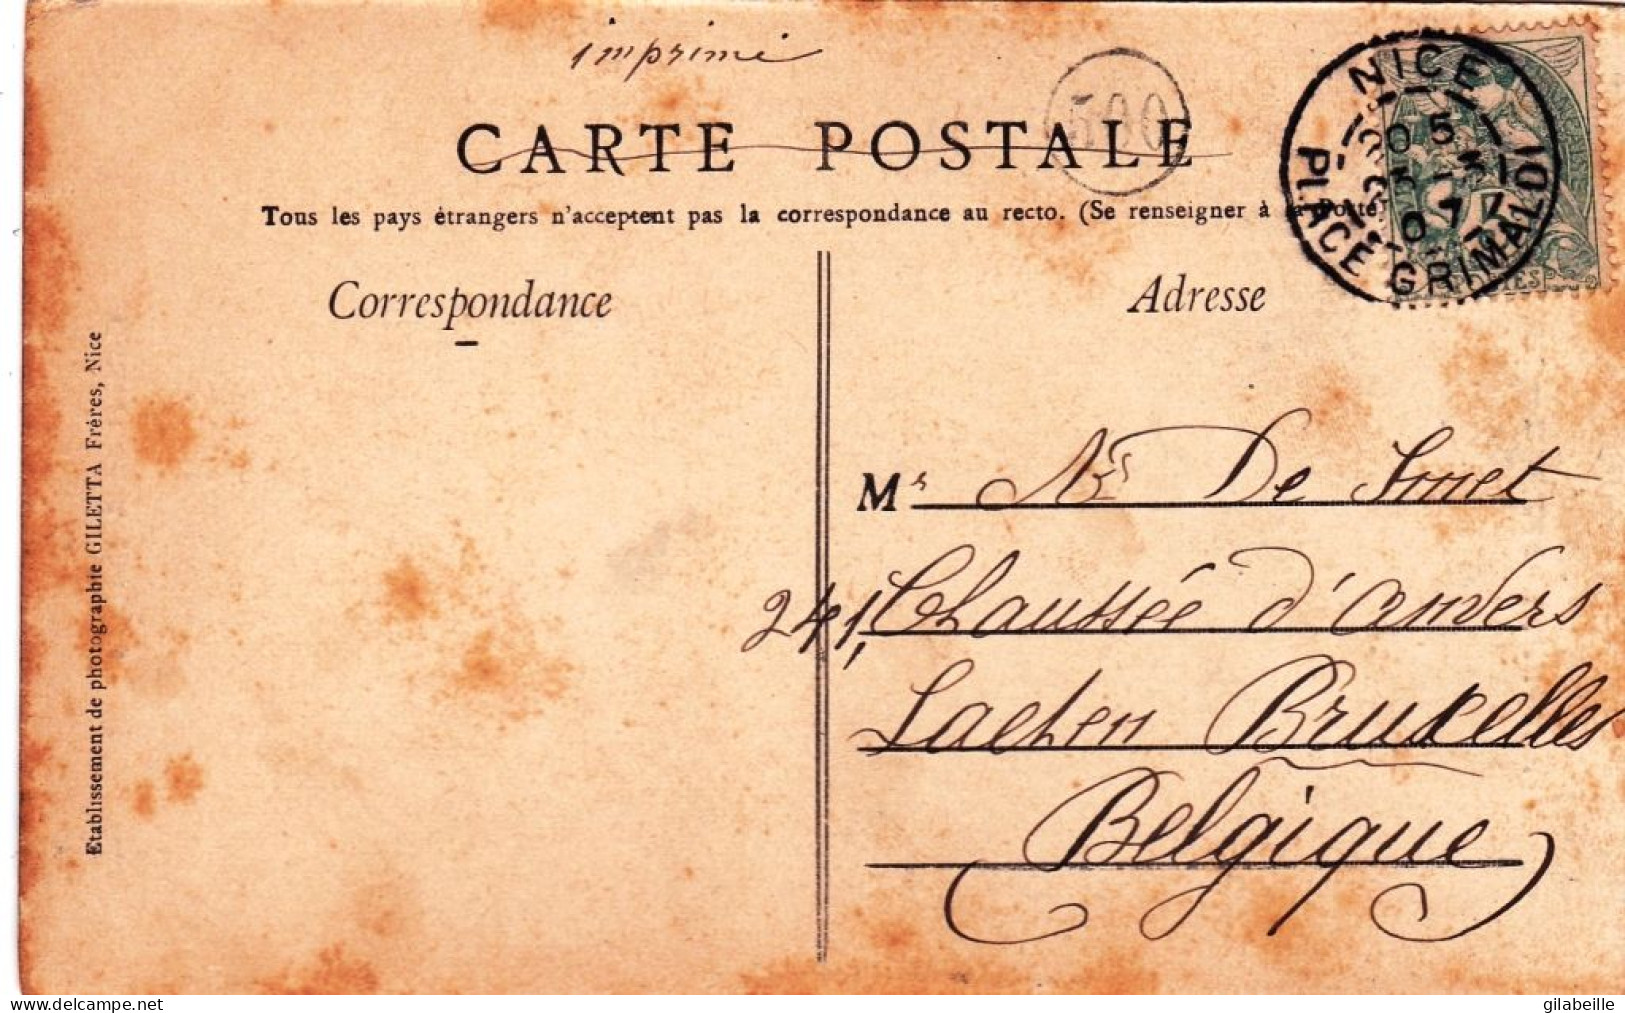 imprimé
CARTE POSTALE
500
Tous les pays étrangers n'acceptent pas la correspondance au recto. (Se renseigner à la Poste
NICE
PLACE GRIMALDI
05
5-3
07
Correspondance
Adresse
Mr De Smet
241, Chaussée d'anvers
Laeken Bruxelles
Belgique
Etablissement de photographie GILETTA Frères, Nice
www.delcampe.net
gilabeille